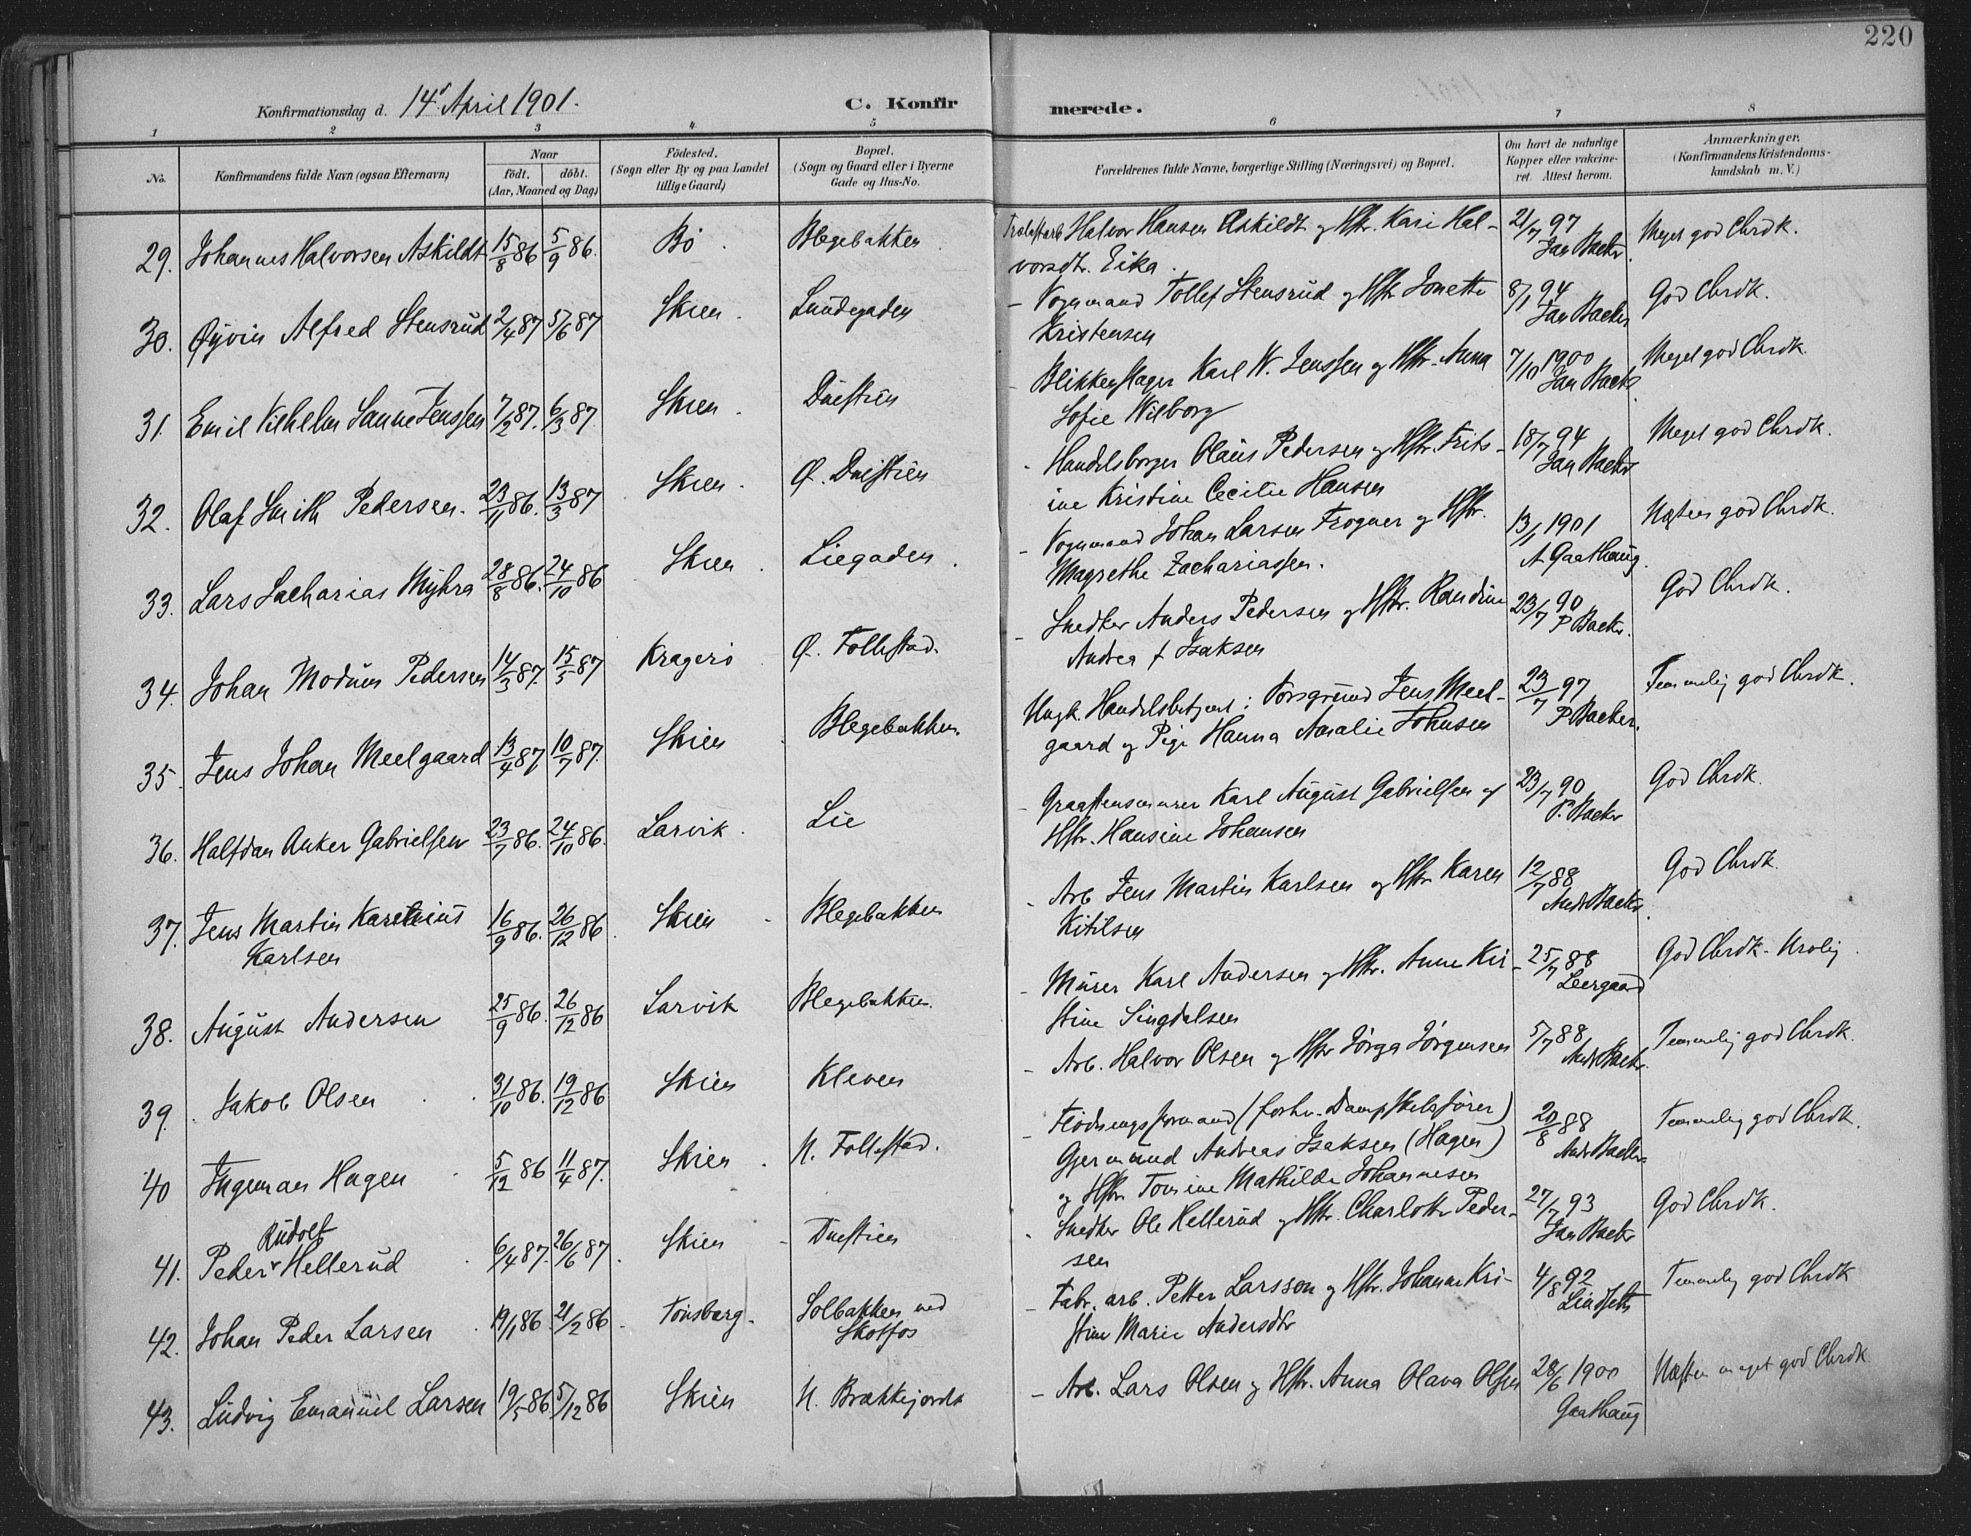 220
Konfirmationsdag d. 14de April 1901. C. Konfirmerede.
1 2 3 4 5 6 7 8
No. Konfirmandens fulde Navn (ogsaa Efternavn) Naar födt. döbt. (Aar, Maaned og Dag) Födested. (Sogn eller By og paa Landet tillige Gaard) Bopæl. (Sogn og Gaard eller i Byerne Gade og Hus-No. Forældrenes fulde Navne, borgerlige Stilling (Næringsvei) og Bopæl. Om havt de naturlige Kopper eller vakcineret. Attest herom. Anmærkninger. (Konfirmandens Kristendomskundskab m. V.)
29. Johannes Halvorsen Askildt 15/8 86 5/9 86. Bö Blegebakken Halvor Hansen Askildt og Hstr. Kari Hal- 21/7 97 Meget god Chrdk.
vorsdtr. Eika. Jan Backer
30. Øyvin Alfred Stensrud 2/4 87 5/6 87 Skien. Lundegaden - Vognmand Tollef Stensrud og Hstr Jonette 8/1 94 God Chrdk.
Kristensen Jan Backer
31. Emil Vilhelm Sanne Jenssen 7/2 87. 6/3 87. Skien. Duestien - Blikkenslager Karl W. Jenssen og Hstr. Anna 7/10 1900 Meget god Chrdk.
Sofie Wilborg Jan Backer
32. Olaf Smith Pedersen. 23/11 86. 13/3 87 Skien. Ø. Duestien - Handelsborger Olaus Pedersen og Hstr. Frits- 18/7 94 Meget god Chrdk.
ine Kristine Cecilie Hansen Jan Backer
33. Lars Zacharias Myhra 28/8 86. 24/10 86 Skien. Liegaden. - Vognmand Johan Larsen Frogner og Hstr. 13/1 1901 Næsten god Chrdk.
Magrethe Zachariassen. A Gaathaug.
34. Johan Modum Pedersen 14/3 87. 15/5 87 Kragerö Ø. Follestad. - Snedker Anders Pedersen og Hstr. Randine 23/7 90 God Chrdk.
Andrea f Isaksen P Backer.
35. Jens Johan Meelgaard 13/4 87 10/7 87. Skien Blegebakken. Ungk. Handelsbetjent i Porsgrund Jens Meel- 23/7 97 Temmelig god Chrdk.
gaard og Pige Hanna Amalie Johnsen P Backer.
36. Halfdan Anker Gabrielsen 23/7 86. 24/10 86. Larvik. Lie - Graastensmurer Karl August Gabrielsen og 23/7 90 God Chrdk.
Hstr. Hansine Johansen P. Backer
37. Jens Martin Karelius 16/9 86. 26/12 86. Skien Blegebakken - Arb Jens Martin Karlsen og Hstr Karen 12/7 88 God Chrdk.
Karlsen Kitilsen Andr Backer
38. August Andersen 25/9 86. 26/12 86 Larvik Blegebakken. - Murer Karl Andersen og Hstr. Anne Kir- 25/7 88 God Chrdk. Urolig
stine Singdalsen Leergaard
39. Jakob Olsen 31/10 86. 19/12 86 Skien Kleven - Arb. Halvor Olsen og Hstr Jørga Jørgensen 5/7 88 Temmelig god Chrdk.
Andr Backer.
40 Ingeman Hagen 5/12 86 11/4 87. Skien. N. Follestad. - Flödningsformand (forhv. Dampskibsfører) 20/8 88 Temmelig god Chrdk.
Germund Andreas Isaksen (Hagen) Andr Backer
og Hstr Tomine Mathilde Johannesen
41. Peder Rudolf Hellerud 6/4 87. 26/6 87. Skien Duestien - Snedker Ole Hellerud og Hstr. Charlotte Peder- 27/7 93 God Chrdk.
sen Jan Backer
42. Johan Peder Larsen 19/1 86. 21/2 86. Tönsberg. Solbakken ved - Fabr. arb. Petter Larsson og Hstr. Johanne Kri- 4/8 92 Temmelig god Chrdk
Skotfos stine Marie Andersdtr Lindseth
43. Ludvig Emanuel Larsen 19/5 86 5/12 86 Skien N. Brækkejordet - Arb. Lars Olsen og Hstr. Anna Olava Olsen 28/6 1900 Næsten meget god Chrdk.
Gaathaug